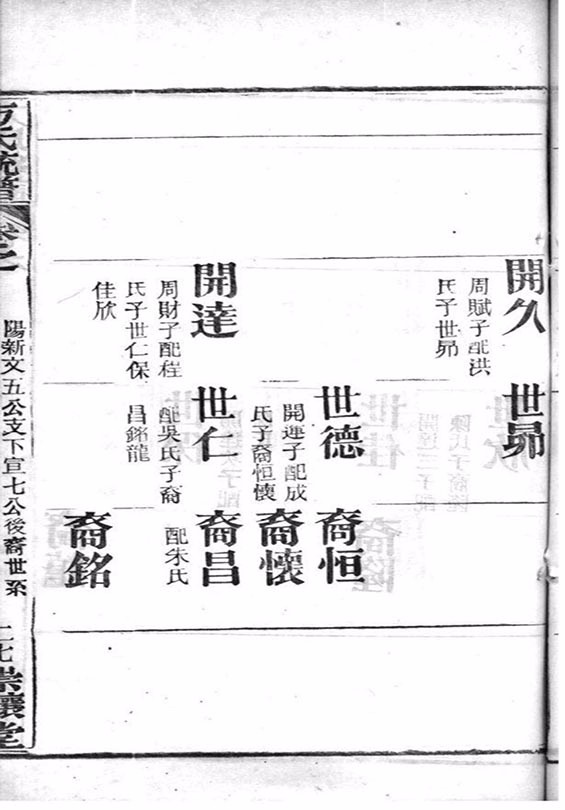 開久
周賦子配洪
氏子世昴
世昴
世德
開運子配成
氏子裔恒懷
裔恒
裔懷
開達
周財子配程
氏子世仁保
佳欣
世仁
配吳氏子裔
昌銘龍
裔昌
配朱氏
裔銘
方氏統譜
卷之
陽新文五公支下宣七公後裔世系
二七